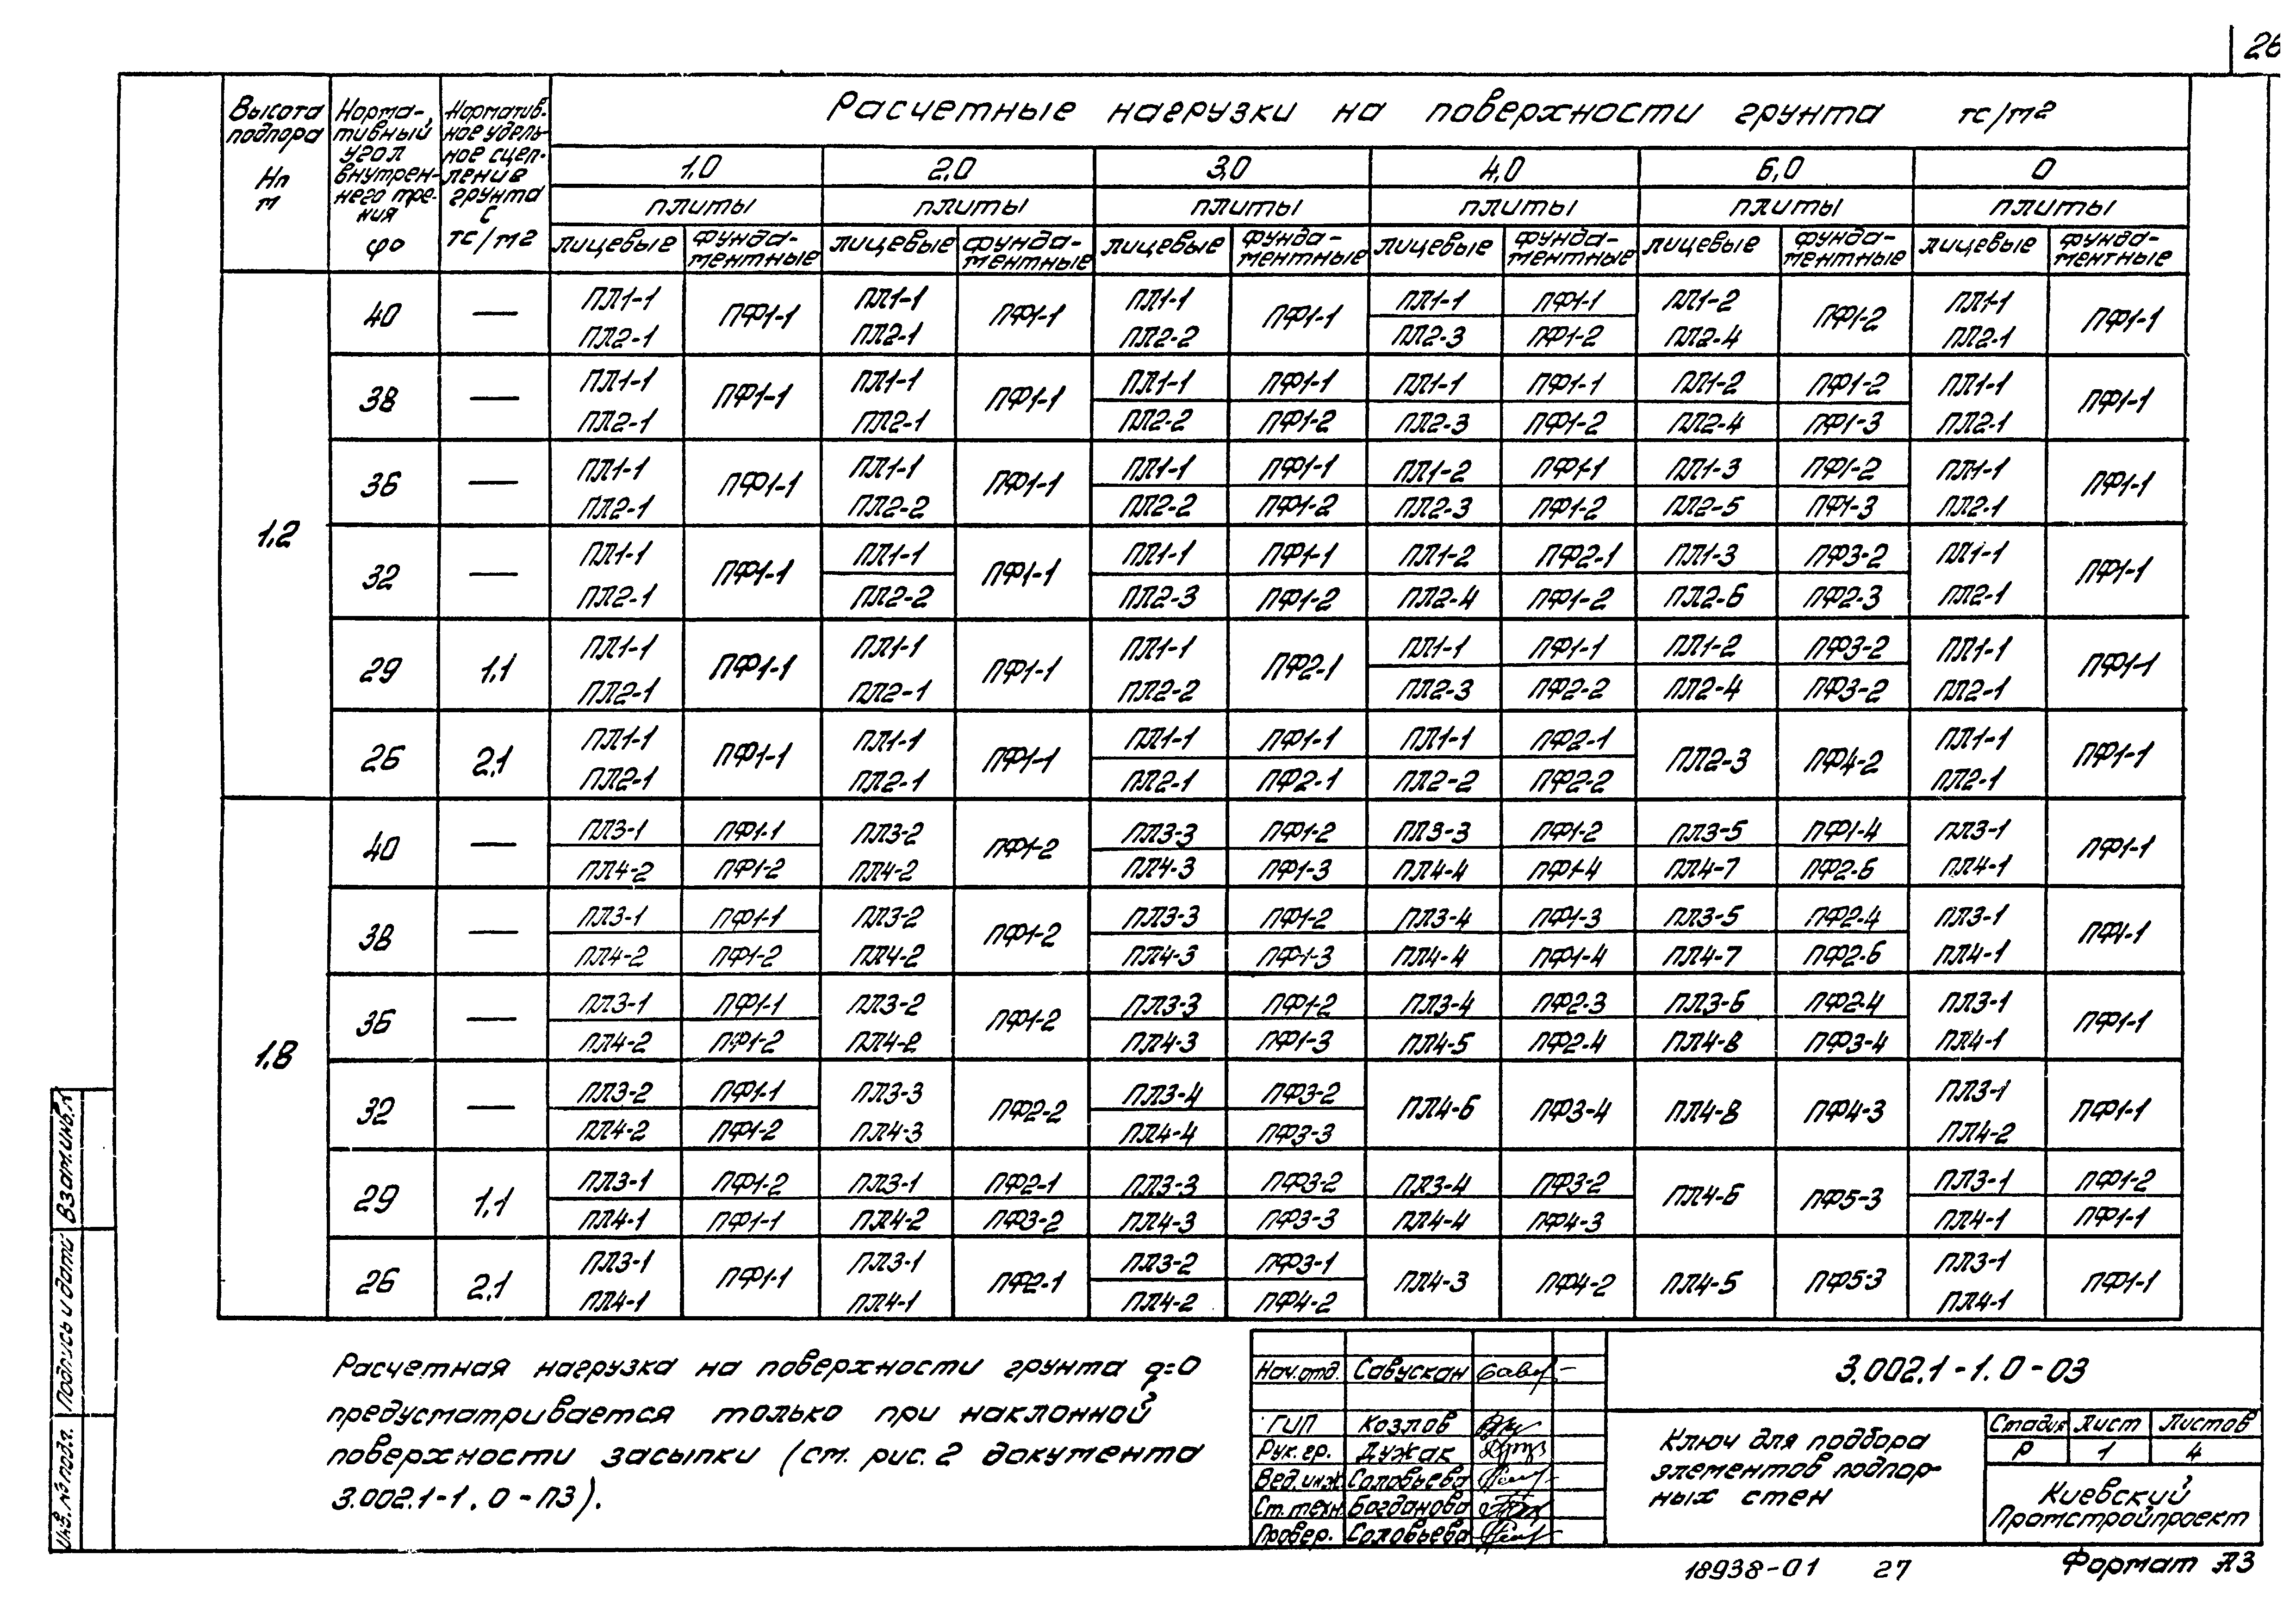 26
Высота подпора Нп м
Норма-тивный угол внутрен-него тре-ния φ°
Норматив-ное удель-ное сцеп-ление грунта С тс/м2
Расчетные нагрузки на поверхности грунта тс/м2
1,0 2,0 3,0 4,0 6,0 0
плиты плиты плиты плиты плиты плиты
лицевые фунда-ментные лицевые фунда-ментные лицевые фунда-ментные лицевые фунда-ментные лицевые фунда-ментные лицевые фунда-ментные
1,2
40 — ПФ1-1 ПФ1-1 ПФ1-1 ПФ1-2 ПФ1-1
ПЛ1-1 ПЛ1-1 ПЛ1-1 ПЛ1-1 ПФ1-1 ПЛ1-2 ПЛ1-1
ПЛ2-1 ПЛ2-1 ПЛ2-2 ПЛ2-3 ПФ1-2 ПЛ2-4 ПЛ2-1
38 — ПФ1-1 ПФ1-1 ПФ1-1
ПЛ1-1 ПЛ1-1 ПЛ1-1 ПФ1-1 ПЛ1-1 ПФ1-1 ПЛ1-2 ПФ1-2 ПЛ1-1
ПЛ2-1 ПЛ2-1 ПЛ2-2 ПФ1-2 ПЛ2-3 ПФ1-2 ПЛ2-4 ПФ1-3 ПЛ2-1
36 — ПФ1-1 ПФ1-1 ПФ1-1
ПЛ1-1 ПЛ1-1 ПЛ1-1 ПФ1-1 ПЛ1-2 ПФ1-1 ПЛ1-3 ПФ1-2 ПЛ1-1
ПЛ2-1 ПЛ2-2 ПЛ2-2 ПФ1-2 ПЛ2-3 ПФ1-2 ПЛ2-5 ПФ1-3 ПЛ2-1
32 — ПФ1-1 ПФ1-1 ПФ1-1
ПЛ1-1 ПЛ1-1 ПЛ1-1 ПФ1-1 ПЛ1-2 ПФ2-1 ПЛ1-3 ПФ3-2 ПЛ1-1
ПЛ2-1 ПЛ2-2 ПЛ2-3 ПФ1-2 ПЛ2-4 ПФ1-2 ПЛ2-6 ПФ2-3 ПЛ2-1
29 1,1 ПФ1-1 ПФ1-1 ПФ2-1 ПФ1-1
ПЛ1-1 ПЛ1-1 ПЛ1-1 ПЛ1-1 ПФ1-1 ПЛ1-2 ПФ3-2 ПЛ1-1
ПЛ2-1 ПЛ2-1 ПЛ2-2 ПЛ2-3 ПФ2-2 ПЛ2-4 ПФ3-2 ПЛ2-1
26 2,1 ПФ1-1 ПФ1-1 ПЛ2-3 ПФ4-2 ПФ1-1
ПЛ1-1 ПЛ1-1 ПЛ1-1 ПФ1-1 ПЛ1-1 ПФ2-1 ПЛ1-1
ПЛ2-1 ПЛ2-1 ПЛ2-1 ПФ2-1 ПЛ2-2 ПФ2-2 ПЛ2-1
1,8
40 — ПФ1-2 ПФ1-1
ПЛ3-1 ПФ1-1 ПЛ3-2 ПЛ3-3 ПФ1-2 ПЛ3-3 ПФ1-2 ПЛ3-5 ПФ1-4 ПЛ3-1
ПЛ4-2 ПФ1-2 ПЛ4-2 ПЛ4-3 ПФ1-3 ПЛ4-4 ПФ1-4 ПЛ4-7 ПФ2-6 ПЛ4-1
38 — ПФ1-2 ПФ1-1
ПЛ3-1 ПФ1-1 ПЛ3-2 ПЛ3-3 ПФ1-2 ПЛ3-4 ПФ1-3 ПЛ3-5 ПФ2-4 ПЛ3-1
ПЛ4-2 ПФ1-2 ПЛ4-2 ПЛ4-3 ПФ1-3 ПЛ4-4 ПФ1-4 ПЛ4-7 ПФ2-6 ПЛ4-1
36 — ПФ1-2 ПФ1-1
ПЛ3-1 ПФ1-1 ПЛ3-2 ПЛ3-3 ПФ1-2 ПЛ3-4 ПФ2-3 ПЛ3-6 ПФ2-4 ПЛ3-1
ПЛ4-2 ПФ1-2 ПЛ4-2 ПЛ4-3 ПФ1-3 ПЛ4-5 ПФ2-4 ПЛ4-8 ПФ3-4 ПЛ4-1
32 — ПФ2-2 ПЛ4-6 ПФ3-4 ПЛ4-8 ПФ4-3 ПФ1-1
ПЛ3-2 ПФ1-1 ПЛ3-3 ПЛ3-4 ПФ3-2 ПЛ3-1
ПЛ4-2 ПФ1-2 ПЛ4-3 ПЛ4-4 ПФ3-3 ПЛ4-2
29 1,1 ПЛ4-6 ПФ5-3
ПЛ3-1 ПФ1-2 ПЛ3-1 ПФ2-1 ПЛ3-3 ПФ3-2 ПЛ3-4 ПФ3-2 ПЛ3-1 ПФ1-2
ПЛ4-1 ПФ1-1 ПЛ4-2 ПФ3-2 ПЛ4-3 ПФ3-3 ПЛ4-4 ПФ4-3 ПЛ4-1 ПФ1-1
26 2,1 ПФ1-1 ПФ2-1 ПЛ4-3 ПФ4-2 ПЛ4-5 ПФ5-3 ПФ1-1
ПЛ3-1 ПЛ3-1 ПЛ3-2 ПФ3-1 ПЛ3-1
ПЛ4-1 ПЛ4-1 ПЛ4-2 ПФ4-2 ПЛ4-1
Расчетная нагрузка на поверхности грунта q=0
предусматривается только при наклонной
поверхности засыпки (см. рис. 2 документа
3.002.1-1.0-ПЗ).
Нач.отд. Савускан
ГИП Козлов
Рук.гр. Дужак
Вед.инж. Соловьева
Ст.техн. Богданова
Провер. Соловьева
3.002.1-1.0-03
Ключ для подбора
элементов подпор-
ных стен
Стадия Лист Листов
Р 1 4
Киевский
Промстройпроект
18938-01 27
Формат А3
Инв. № подл. Подпись и дата Взам. инв. №